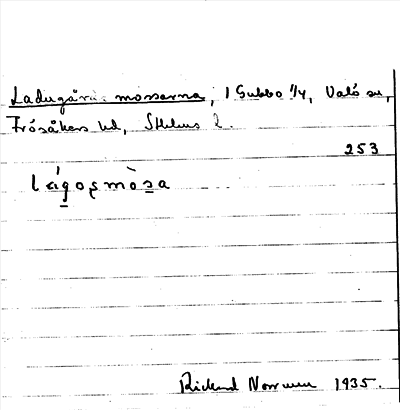 Ladugårdsmossarna, 1 Gubbo 1/4, Valö sn,
Frösåkers hd, Sthlms l.
253
lágosmòsa
Rickard Norrman 1935.